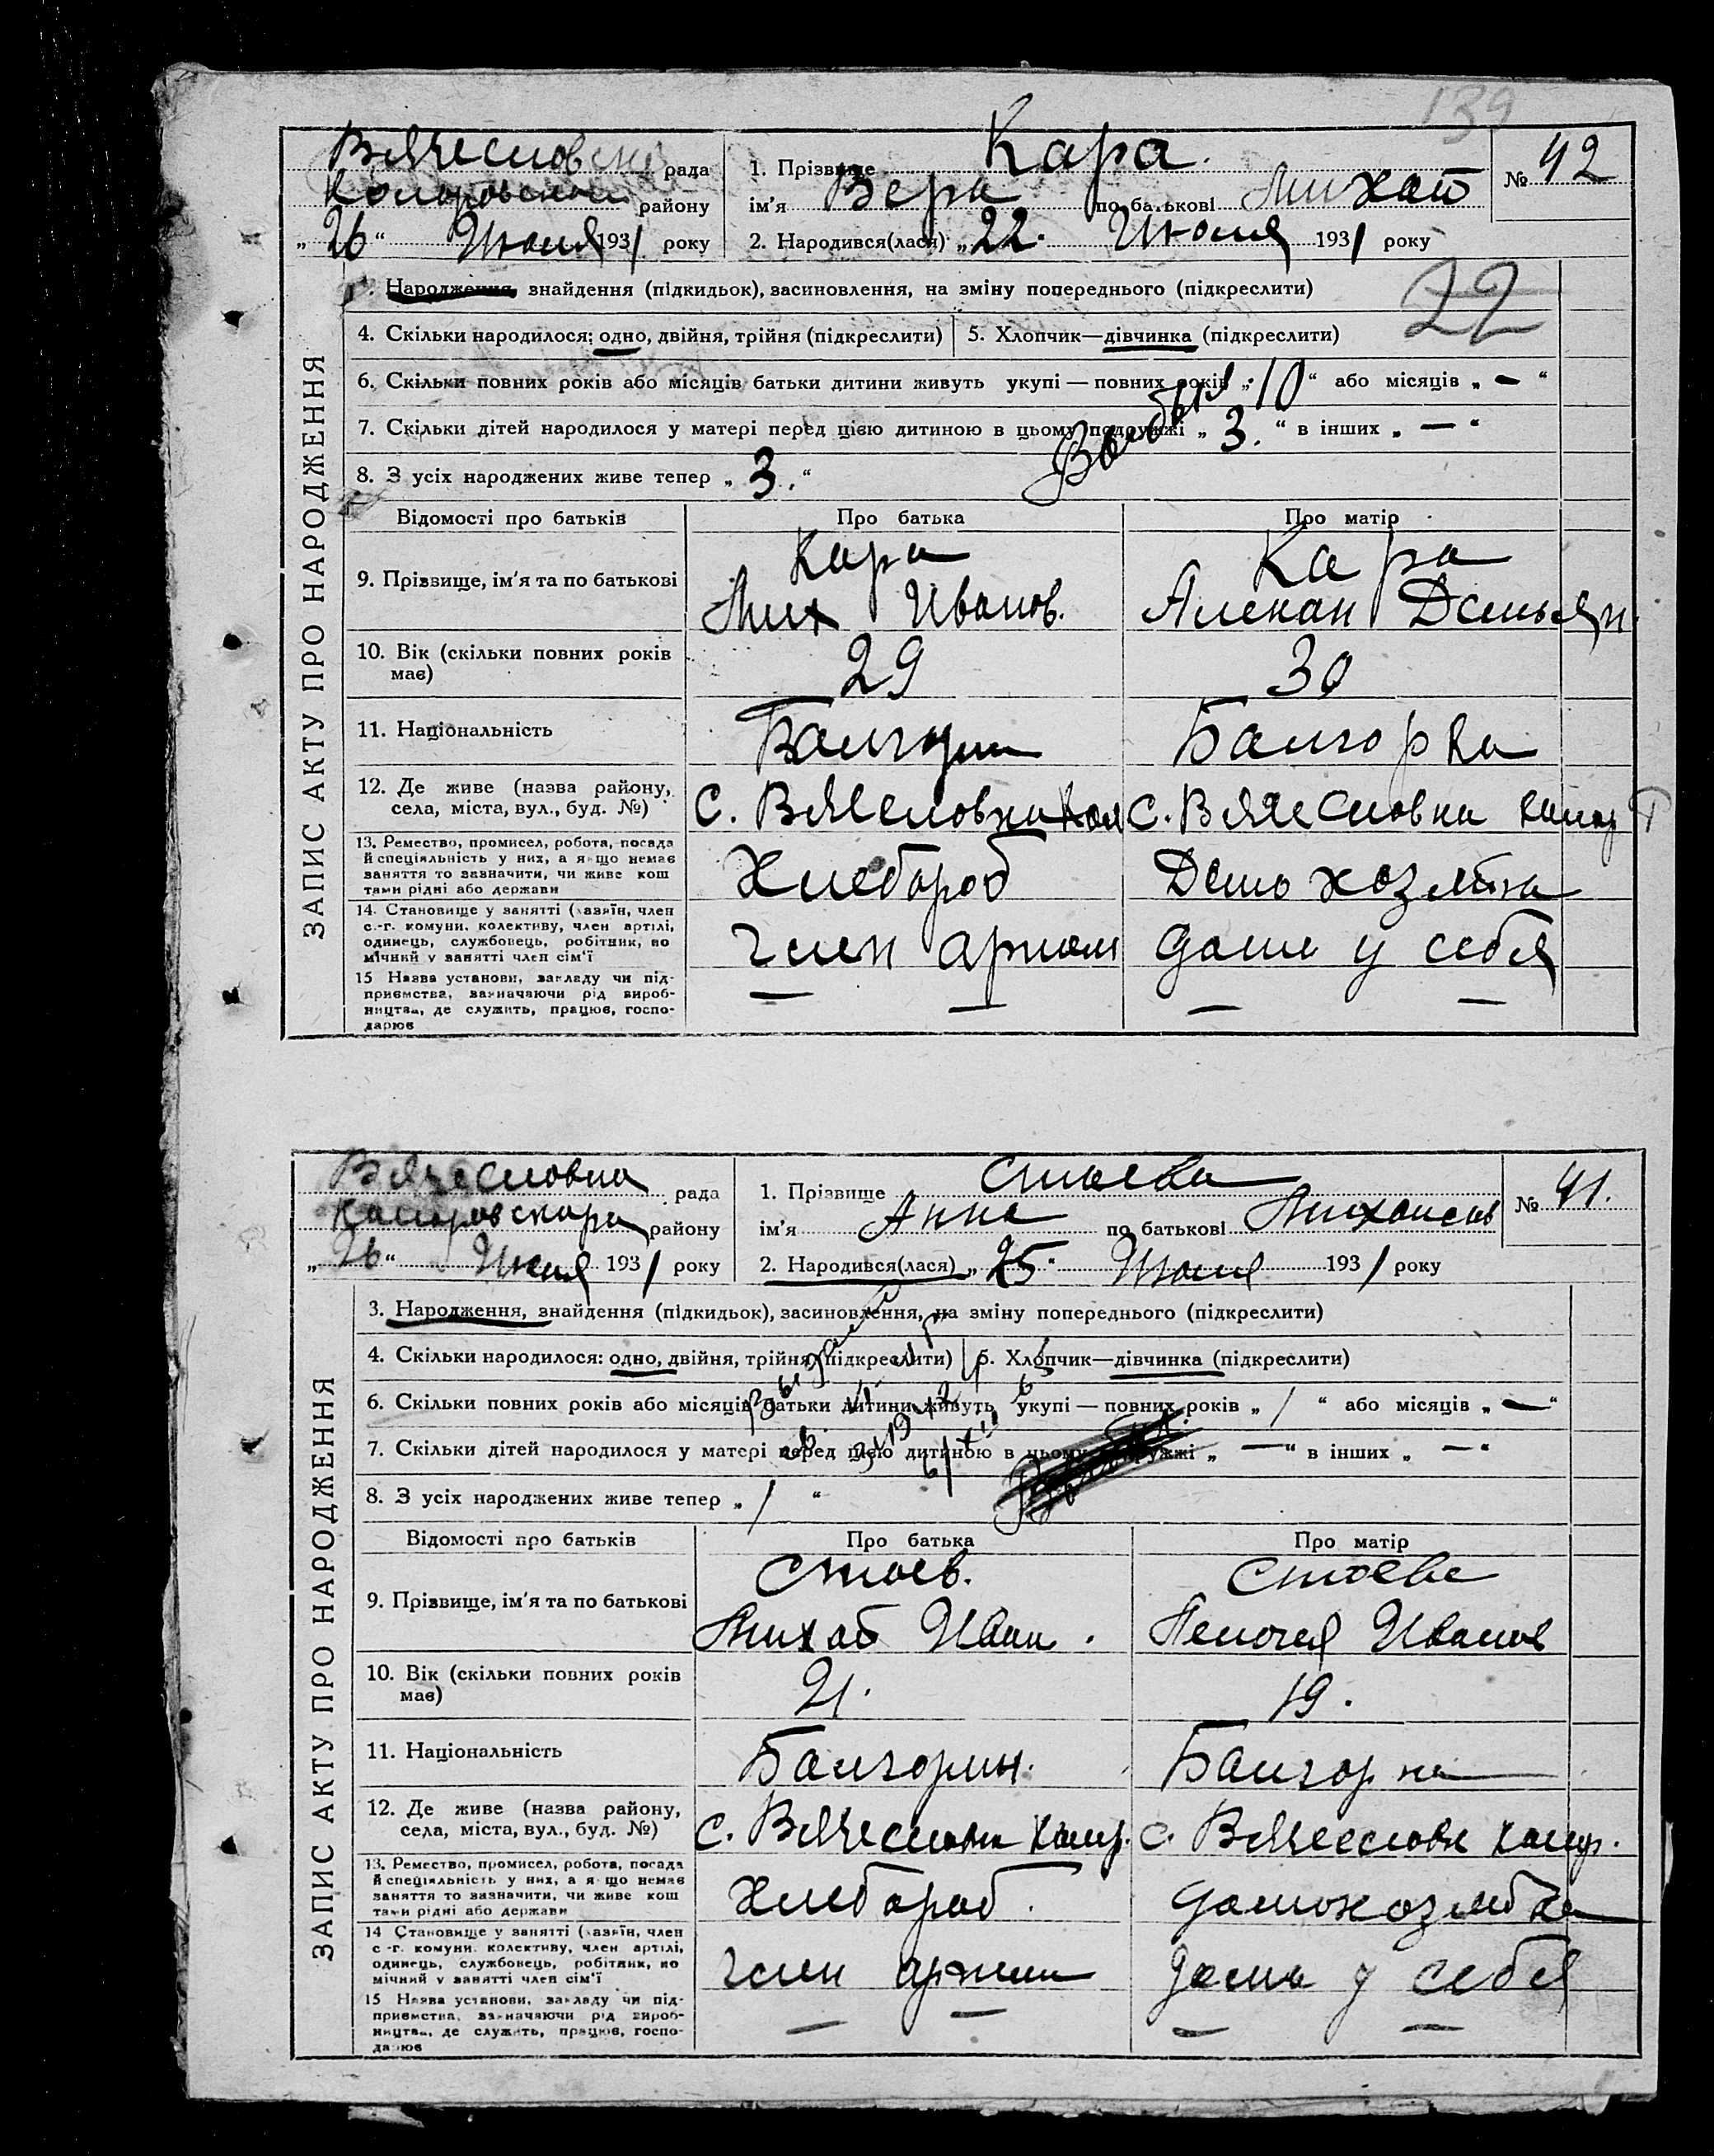 139
Вячесловск рада
Коларовском району
„26“ Июля 1931 року
1. Прізвище Кара.
ім'я Вера по батькові Михай
2. Народився(лася) „22“ Июля 1931 року
№ 42
3. Народження, знайдення (підкидьок), засиновлення, на зміну попереднього (підкреслити)
22
4. Скільки народилося: одно, двійня, трійня (підкреслити) 5. Хлопчик—дівчинка (підкреслити)
6. Скільки повних років або місяців батьки дитини живуть укупі — повних років „10“ або місяців „—“
7. Скільки дітей народилося у матері перед цією дитиною в цьому подружжі „3.“ в інших „—“
8. З усіх народжених живе тепер „3.“
ЗАПИС АКТУ ПРО НАРОДЖЕННЯ
Відомості про батьків Про батька Про матір
9. Прізвище, ім'я та по батькові Кара Кара
Мих Иванов. Алексан Демьян.
10. Вік (скільки повних років має) 29 30
11. Національність Болгарин Болгорка
12. Де живе (назва району, села, міста, вул., буд. №) с. Вячесловка Кол с. Вячесловка Колар
13. Ремество, промисел, робота, посада й спеціяльність у них, а якщо немає заняття то зазначити, чи живе коштами рідні або держави Хлебороб Домохозяйка
14. Становище у занятті (хазяїн, член с.-г. комуни, колективу, член артілі, одинець, службовець, робітник, помічний у занятті член сім'ї член артели дома у себя
15 Назва установи, закладу чи підприємства, зазначаючи рід виробництва, де служить, працює, господарює — — — —
Вячесловка рада
Коларовскора району
„26“ Июля 1931 року
1. Прізвище Стоева
ім'я Анна по батькові Михайлов
2. Народився(лася) „25“ Июля 1931 року
№ 41.
3. Народження, знайдення (підкидьок), засиновлення, на зміну попереднього (підкреслити)
4. Скільки народилося: одно, двійня, трійня (підкреслити) 5. Хлопчик—дівчинка (підкреслити)
6. Скільки повних років або місяців батьки дитини живуть укупі — повних років „1“ або місяців „—“
7. Скільки дітей народилося у матері перед цією дитиною в цьому подружжі „—“ в інших „—“
8. З усіх народжених живе тепер „1“
ЗАПИС АКТУ ПРО НАРОДЖЕННЯ
Відомості про батьків Про батька Про матір
9. Прізвище, ім'я та по батькові Стоев. Стоева
Михай Иван. Пелогея Иванов
10. Вік (скільки повних років має) 21. 19.
11. Національність Болгорин. Болгорка
12. Де живе (назва району, села, міста, вул., буд. №) с. Вячесловк Колар. с. Вячесловк Колар.
13. Ремество, промисел, робота, посада й спеціяльність у них, а якщо немає заняття то зазначити, чи живе коштами рідні або держави Хлебороб. домохозяйка
14 Становище у занятті (хазяїн, член с-г. комуни, колективу, член артілі, одинець, службовець, робітник, помічний у занятті член сім'ї член артели дома у себя
15 Назва установи, закладу чи підприємства, зазначаючи рід виробництва, де служить, працює, господарює — — — —